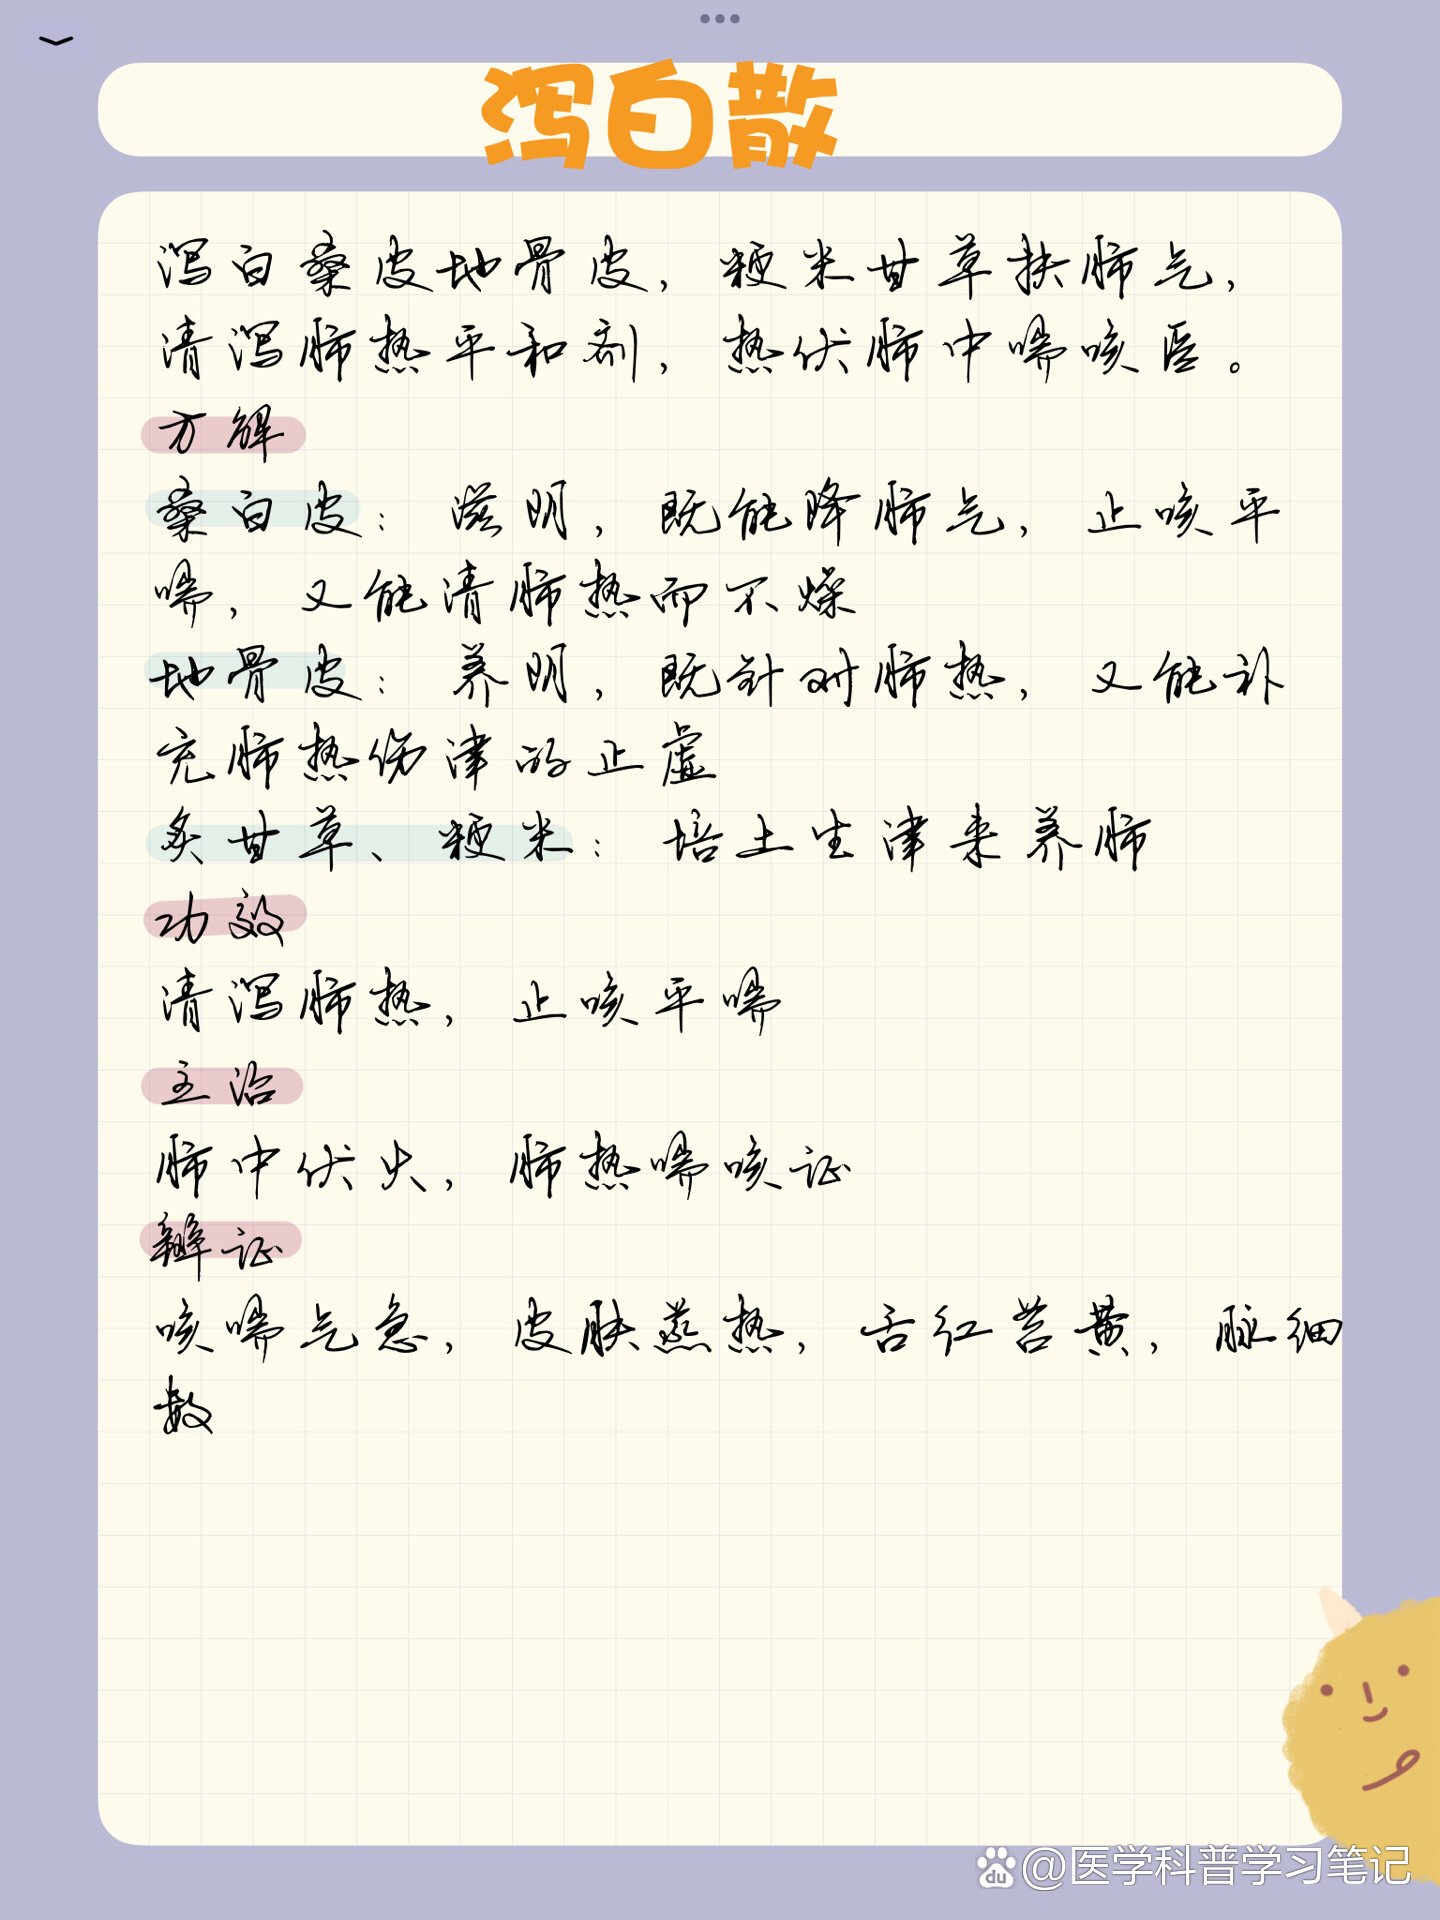 泻白散
泻白桑皮地骨皮，粳米甘草扶肺气，
清泻肺热平和剂，热伏肺中喘咳医。
方解
桑白皮：滋阴，既能降肺气，止咳平
喘，又能清肺热而不燥
地骨皮：养阴，既针对肺热，又能补
充肺热伤津的止虚
炙甘草、粳米：培土生津来养肺
功效
清泻肺热，止咳平喘
主治
肺中伏火，肺热喘咳证
辩证
咳喘气急，皮肤蒸热，舌红苔黄，脉细
数
du @医学科普学习笔记